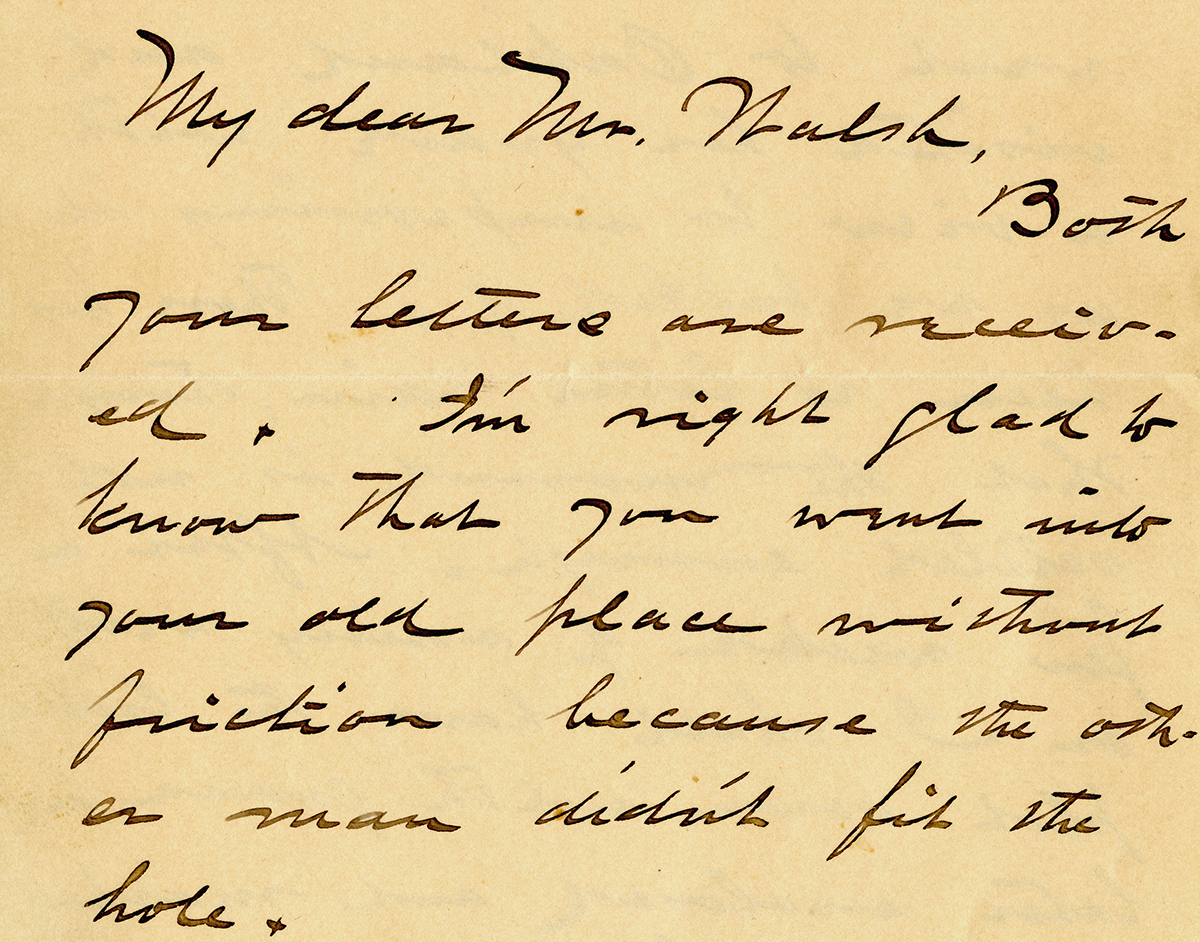 My dear Mr. Walsh,
Both
your letters are receiv-
ed. I'm right glad to
know that you went into
your old place without
friction because the oth-
er man didn't fit the
hole.